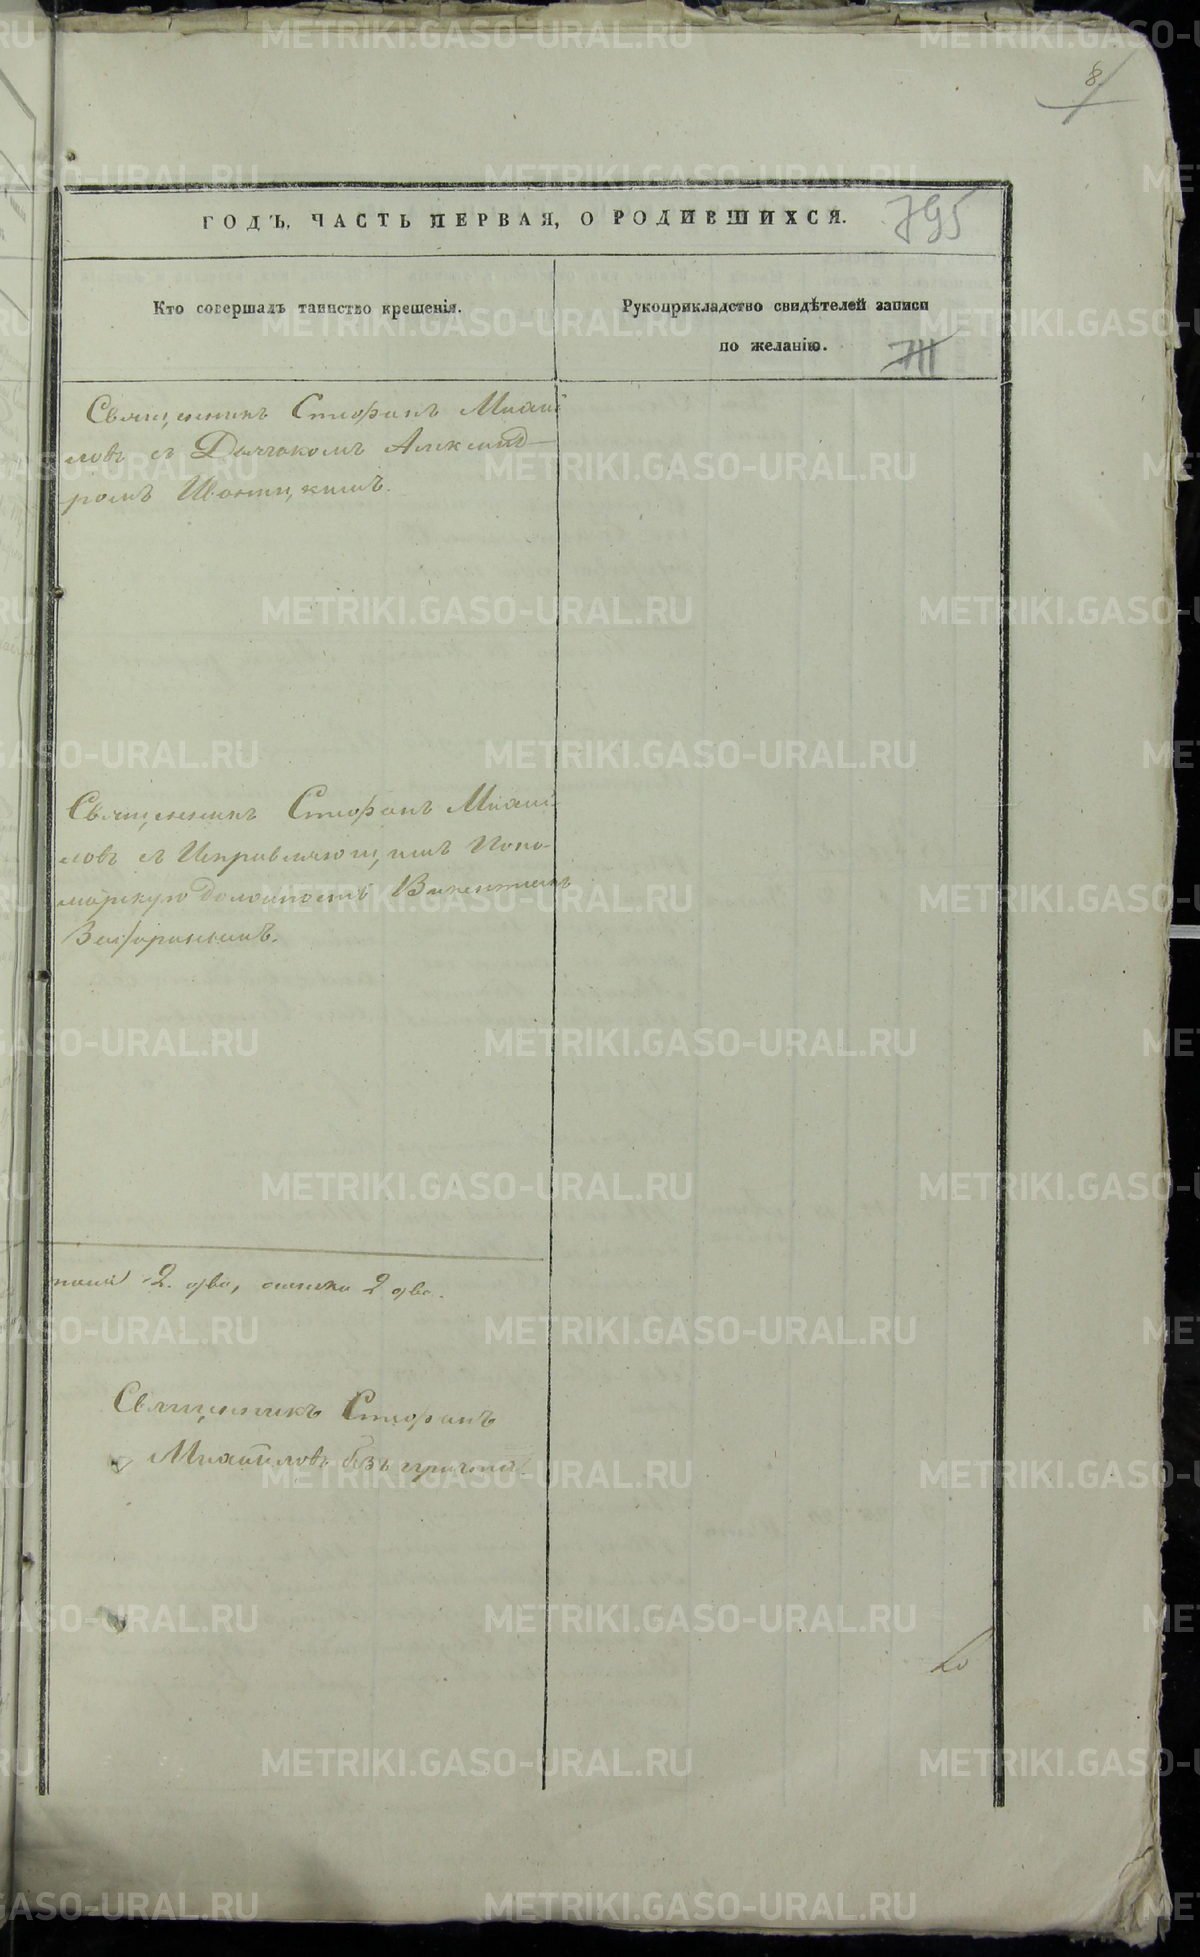 8
ГОДЪ, ЧАСТЬ ПЕРВАЯ, О РОДИВШИХСЯ.
795
Кто совершалъ таинство крещенія.
Рукоприкладство свидѣтелей записи
по желанію.
711
Священникъ Стефанъ Михай
ловъ съ Дьячкомъ Александ
ромъ
Священникъ Стефанъ Михаи
ловъ съ Исправляющимъ Поно
марскую должность Викентіемъ
2. два, 2 два.
Священникъ Стефанъ
Михайловъ безъ причта
METRIKI.GASO-URAL.RU